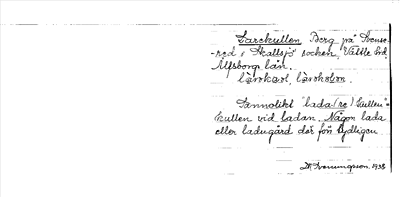 Larekullen Berg på Svense-
red i Skallsjö socken, Vättle hd,
Älfsborgs län.
Sannolikt "lada(re) kullen"=
kullen vid ladan. Någon lada
eller ladugård där förr tydligen
D. Svenungsson. 1938